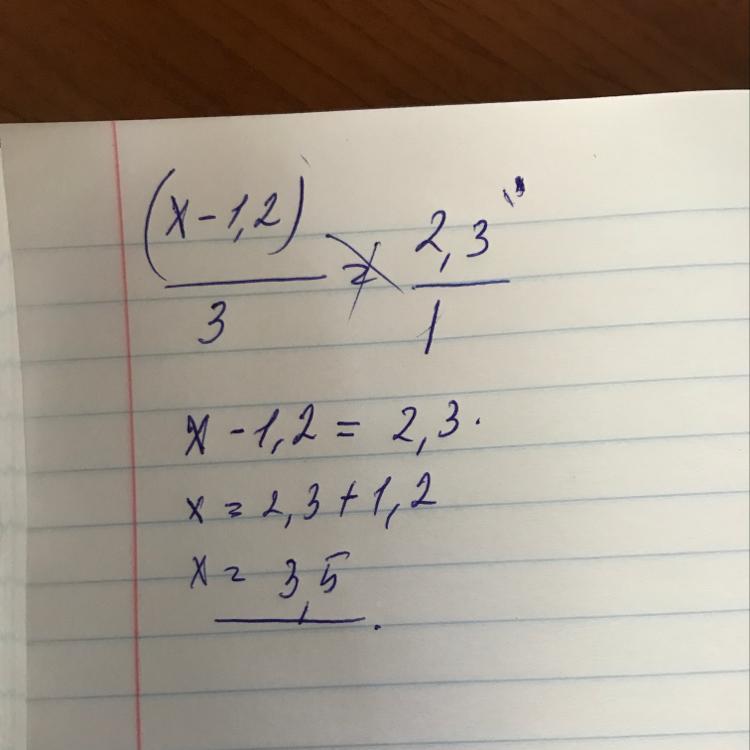 (x-1,2) = 2,3
3 1
x-1,2 = 2,3.
x = 2,3+1,2
x = 3,5.